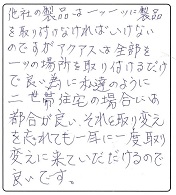 他社の製品は一ツ一ツに製品
を取り付けなければいけない
のですがアクアスは全部を
一つの場所を取り付けるだけ
で良い為に私達のように
二世帯住宅の場合は
都合が良い、それを取り変え
を忘れても一年に一度取り
変えに来ていただけるので
良いです。